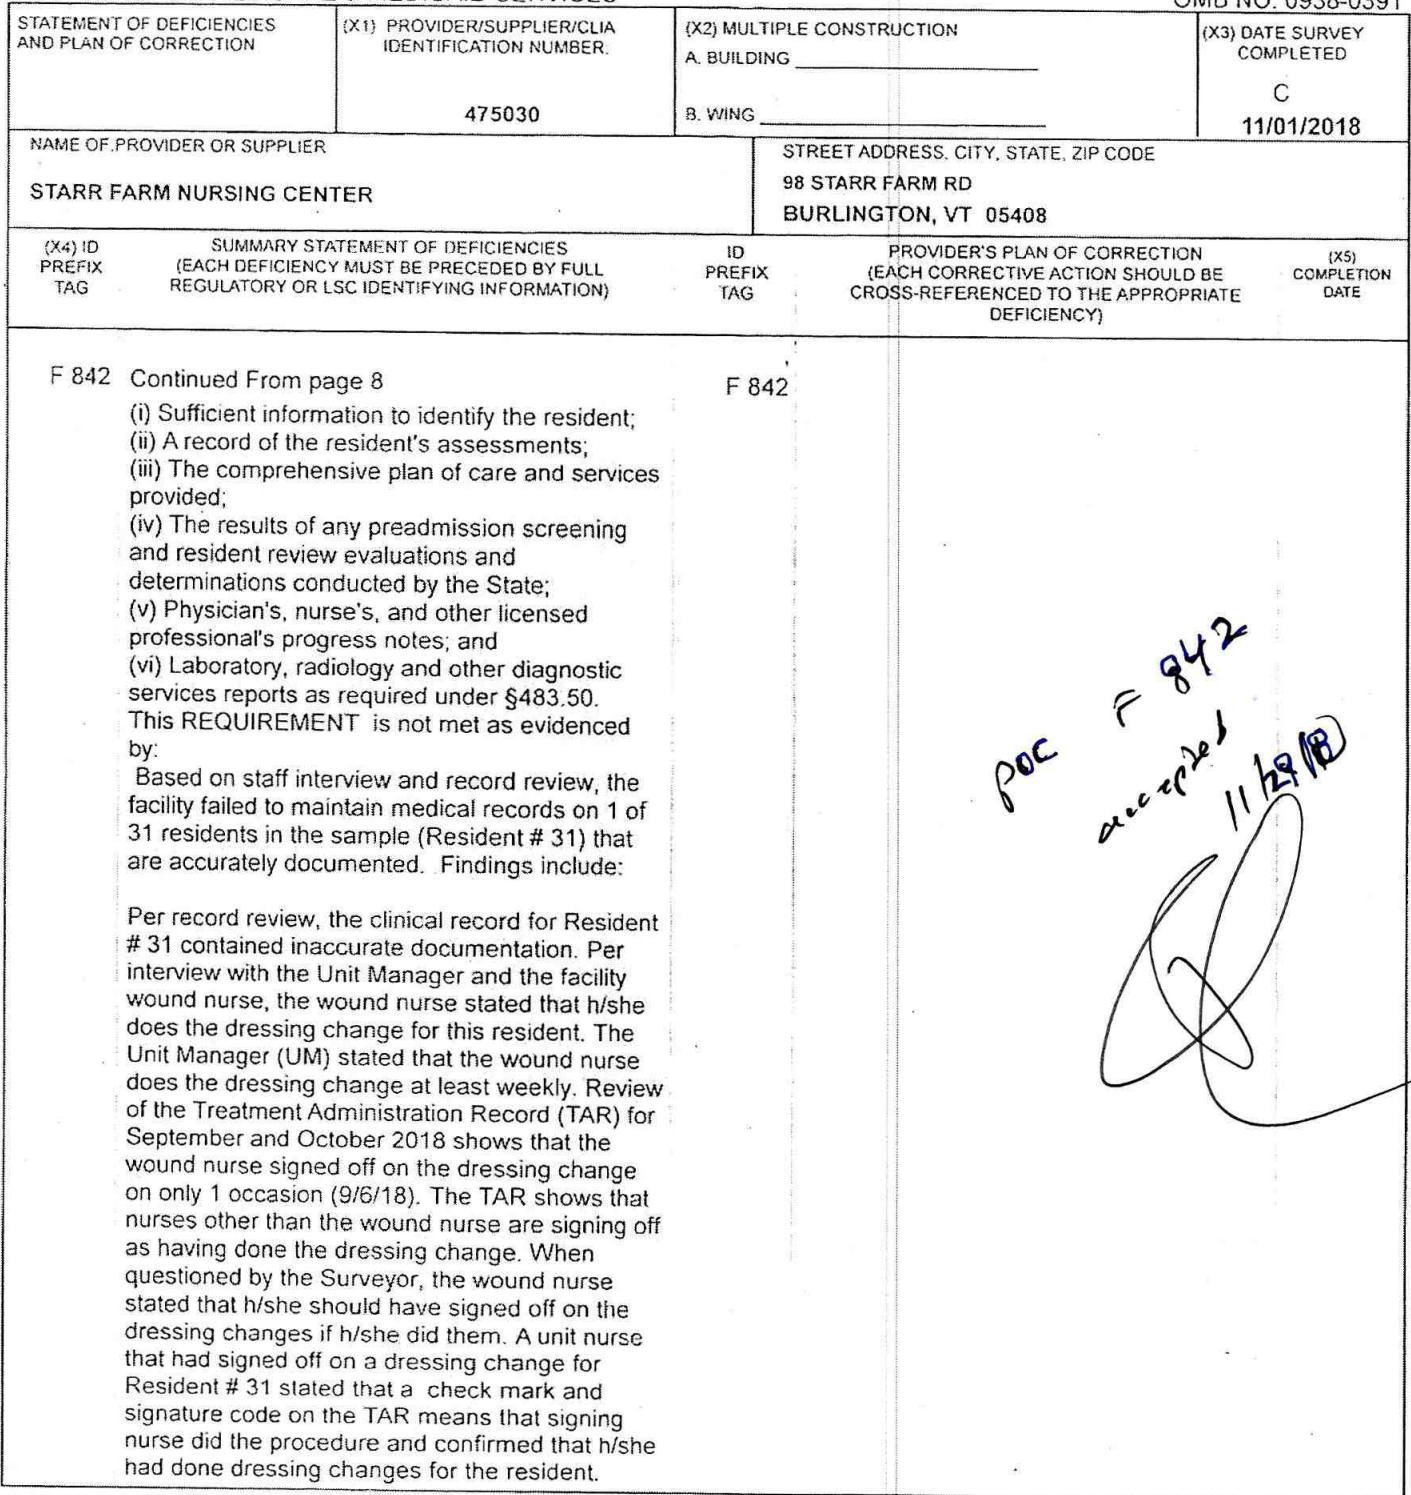 OMB NO. 0938-0391
STATEMENT OF DEFICIENCIES
AND PLAN OF CORRECTION
(X1) PROVIDER/SUPPLIER/CLIA
IDENTIFICATION NUMBER.
475030
(X2) MULTIPLE CONSTRUCTION
A. BUILDING
B. WING
(X3) DATE SURVEY
COMPLETED
C
11/01/2018
NAME OF PROVIDER OR SUPPLIER
STARR FARM NURSING CENTER
STREET ADDRESS, CITY, STATE, ZIP CODE
98 STARR FARM RD
BURLINGTON, VT 05408
(X4) ID
PREFIX
TAG
SUMMARY STATEMENT OF DEFICIENCIES
(EACH DEFICIENCY MUST BE PRECEDED BY FULL
REGULATORY OR LSC IDENTIFYING INFORMATION)
ID
PREFIX
TAG
PROVIDER'S PLAN OF CORRECTION
(EACH CORRECTIVE ACTION SHOULD BE
CROSS-REFERENCED TO THE APPROPRIATE
DEFICIENCY)
(X5)
COMPLETION
DATE
F 842 Continued From page 8
(i) Sufficient information to identify the resident;
(ii) A record of the resident's assessments;
(iii) The comprehensive plan of care and services
provided;
(iv) The results of any preadmission screening
and resident review evaluations and
determinations conducted by the State;
(v) Physician's, nurse's, and other licensed
professional's progress notes; and
(vi) Laboratory, radiology and other diagnostic
services reports as required under §483.50.
This REQUIREMENT is not met as evidenced
by:
Based on staff interview and record review, the
facility failed to maintain medical records on 1 of
31 residents in the sample (Resident # 31) that
are accurately documented. Findings include:
Per record review, the clinical record for Resident
# 31 contained inaccurate documentation. Per
interview with the Unit Manager and the facility
wound nurse, the wound nurse stated that h/she
does the dressing change for this resident. The
Unit Manager (UM) stated that the wound nurse
does the dressing change at least weekly. Review
of the Treatment Administration Record (TAR) for
September and October 2018 shows that the
wound nurse signed off on the dressing change
on only 1 occasion (9/6/18). The TAR shows that
nurses other than the wound nurse are signing off
as having done the dressing change. When
questioned by the Surveyor, the wound nurse
stated that h/she should have signed off on the
dressing changes if h/she did them. A unit nurse
that had signed off on a dressing change for
Resident # 31 stated that a check mark and
signature code on the TAR means that signing
nurse did the procedure and confirmed that h/she
had done dressing changes for the resident.
F 842
POC F 842
accepted